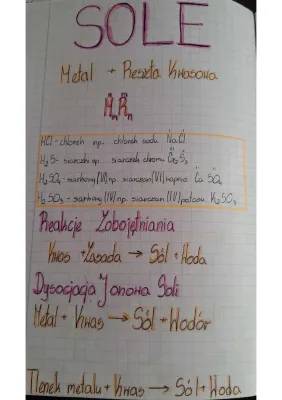 SOLE
Metal + Reszta Kwasowa
MₙRₘ
HCl - chlorek np. chlorek sodu NaCl
H₂S - siarczki np. siarczek chromu Cr₂S₃
H₂SO₄ - siarkowy (VI) np. siarczan (VI) wapnia Ca SO₄
H₂SO₃ - siarkowy (IV) np. siarczan (IV) potasu K₂SO₃
Reakcje Zobojętniania
Kwas + Zasada → Sól + Woda
Dysocjacja Jonowa Soli
Metal + Kwas → Sól + Wodór
Tlenek metalu + Kwas → Sól + Woda